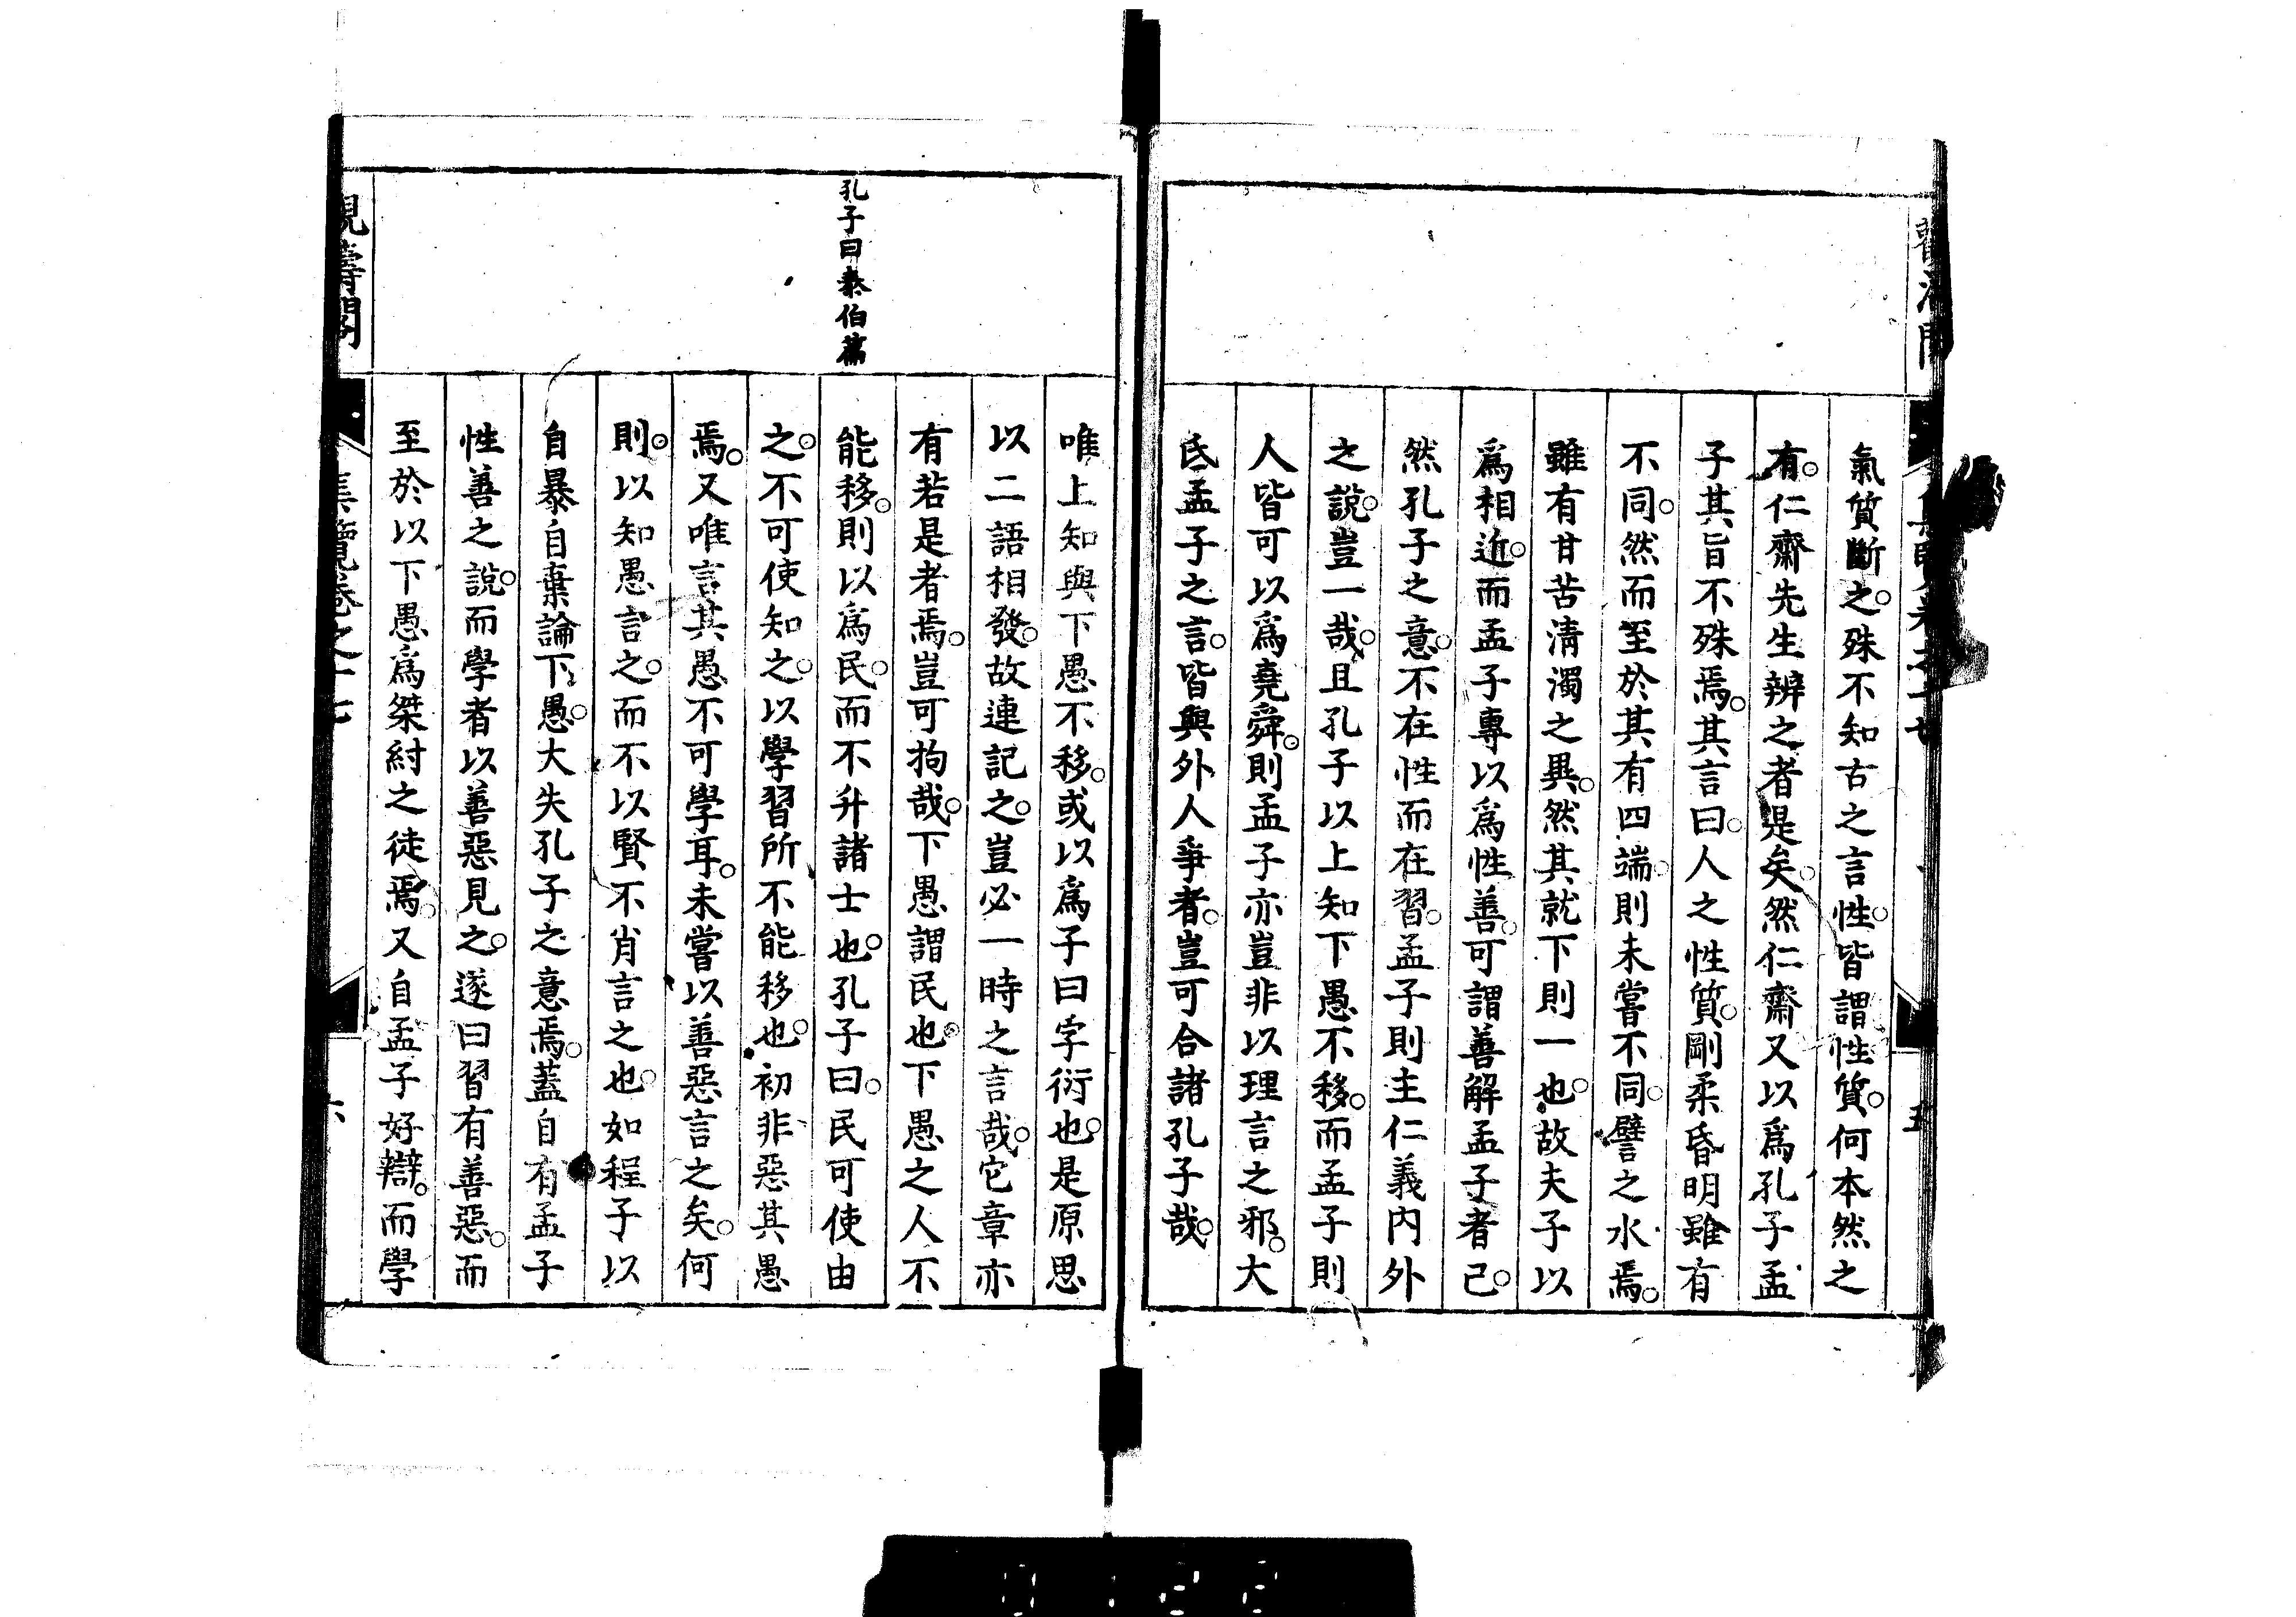 氣質斷之。殊不知古之言性。皆謂性質。何本然之
有。仁齋先生辨之者是矣。然仁齋又以爲孔子孟
子其旨不殊焉。其言曰。人之性質。剛柔昏明雖有
不同。然而至於其有四端。則未嘗不同。譬之水焉。
雖有甘苦清濁之異。然其就下則一也。故夫子以
爲相近。而孟子專以爲性善。可謂善解孟子者已。
然孔子之意。不在性而在習。孟子則主仁義内外
之說。豈一哉。且孔子以上知下愚不移。而孟子則
人皆可以爲堯舜。則孟子亦豈非以理言之邪。大
氐孟子之言。皆與外人爭者。豈可合諸孔子哉。
孔子曰泰伯篇
唯上知與下愚不移。或以爲子曰字衍也。是原思
以二語相發。故連記之。豈必一時之言哉。它章亦
有若是者焉。豈可拘哉。下愚謂民也。下愚之人不
能移。則以爲民。而不升諸士也。孔子曰。民可使由
之。不可使知之。以學習所不能移也。初非惡其愚
焉。又唯言其愚不可學耳。未嘗以善惡言之矣。何
則。以知愚言之。而不以賢不肖言之也。如程子以
自暴自棄論下愚。大失孔子之意焉。蓋自有孟子
性善之說。而學者以善惡見之。遂曰習有善惡。而
至於以下愚爲桀紂之徒焉。又自孟子好辯。而學
集覽卷之十七